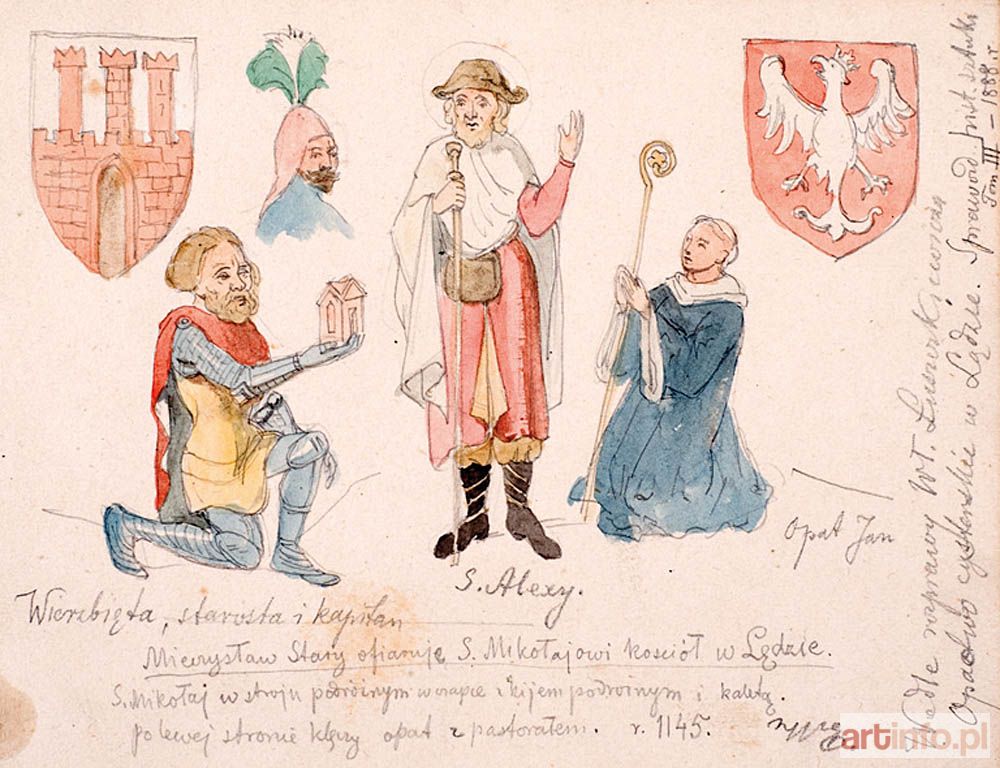 S. Alexy.
Opat Jan
Wierzbięta, starosta i kapitan
Mieczysław Stary ofiaruje S. Mikołajowi kościół w Lędzie.
S. Mikołaj w stroju podróżnym w czapie z kijem podróżnym i kaletą.
po lewej stronie klęczy opat z pastorałem. r. 1145.
Wedle rozprawy Wł. Łuszczkiewicza
Opactwo cysterskie w Lędzie. Sprawozd. hist. sztuki
Tom III – 1888. r
artinfo.pl